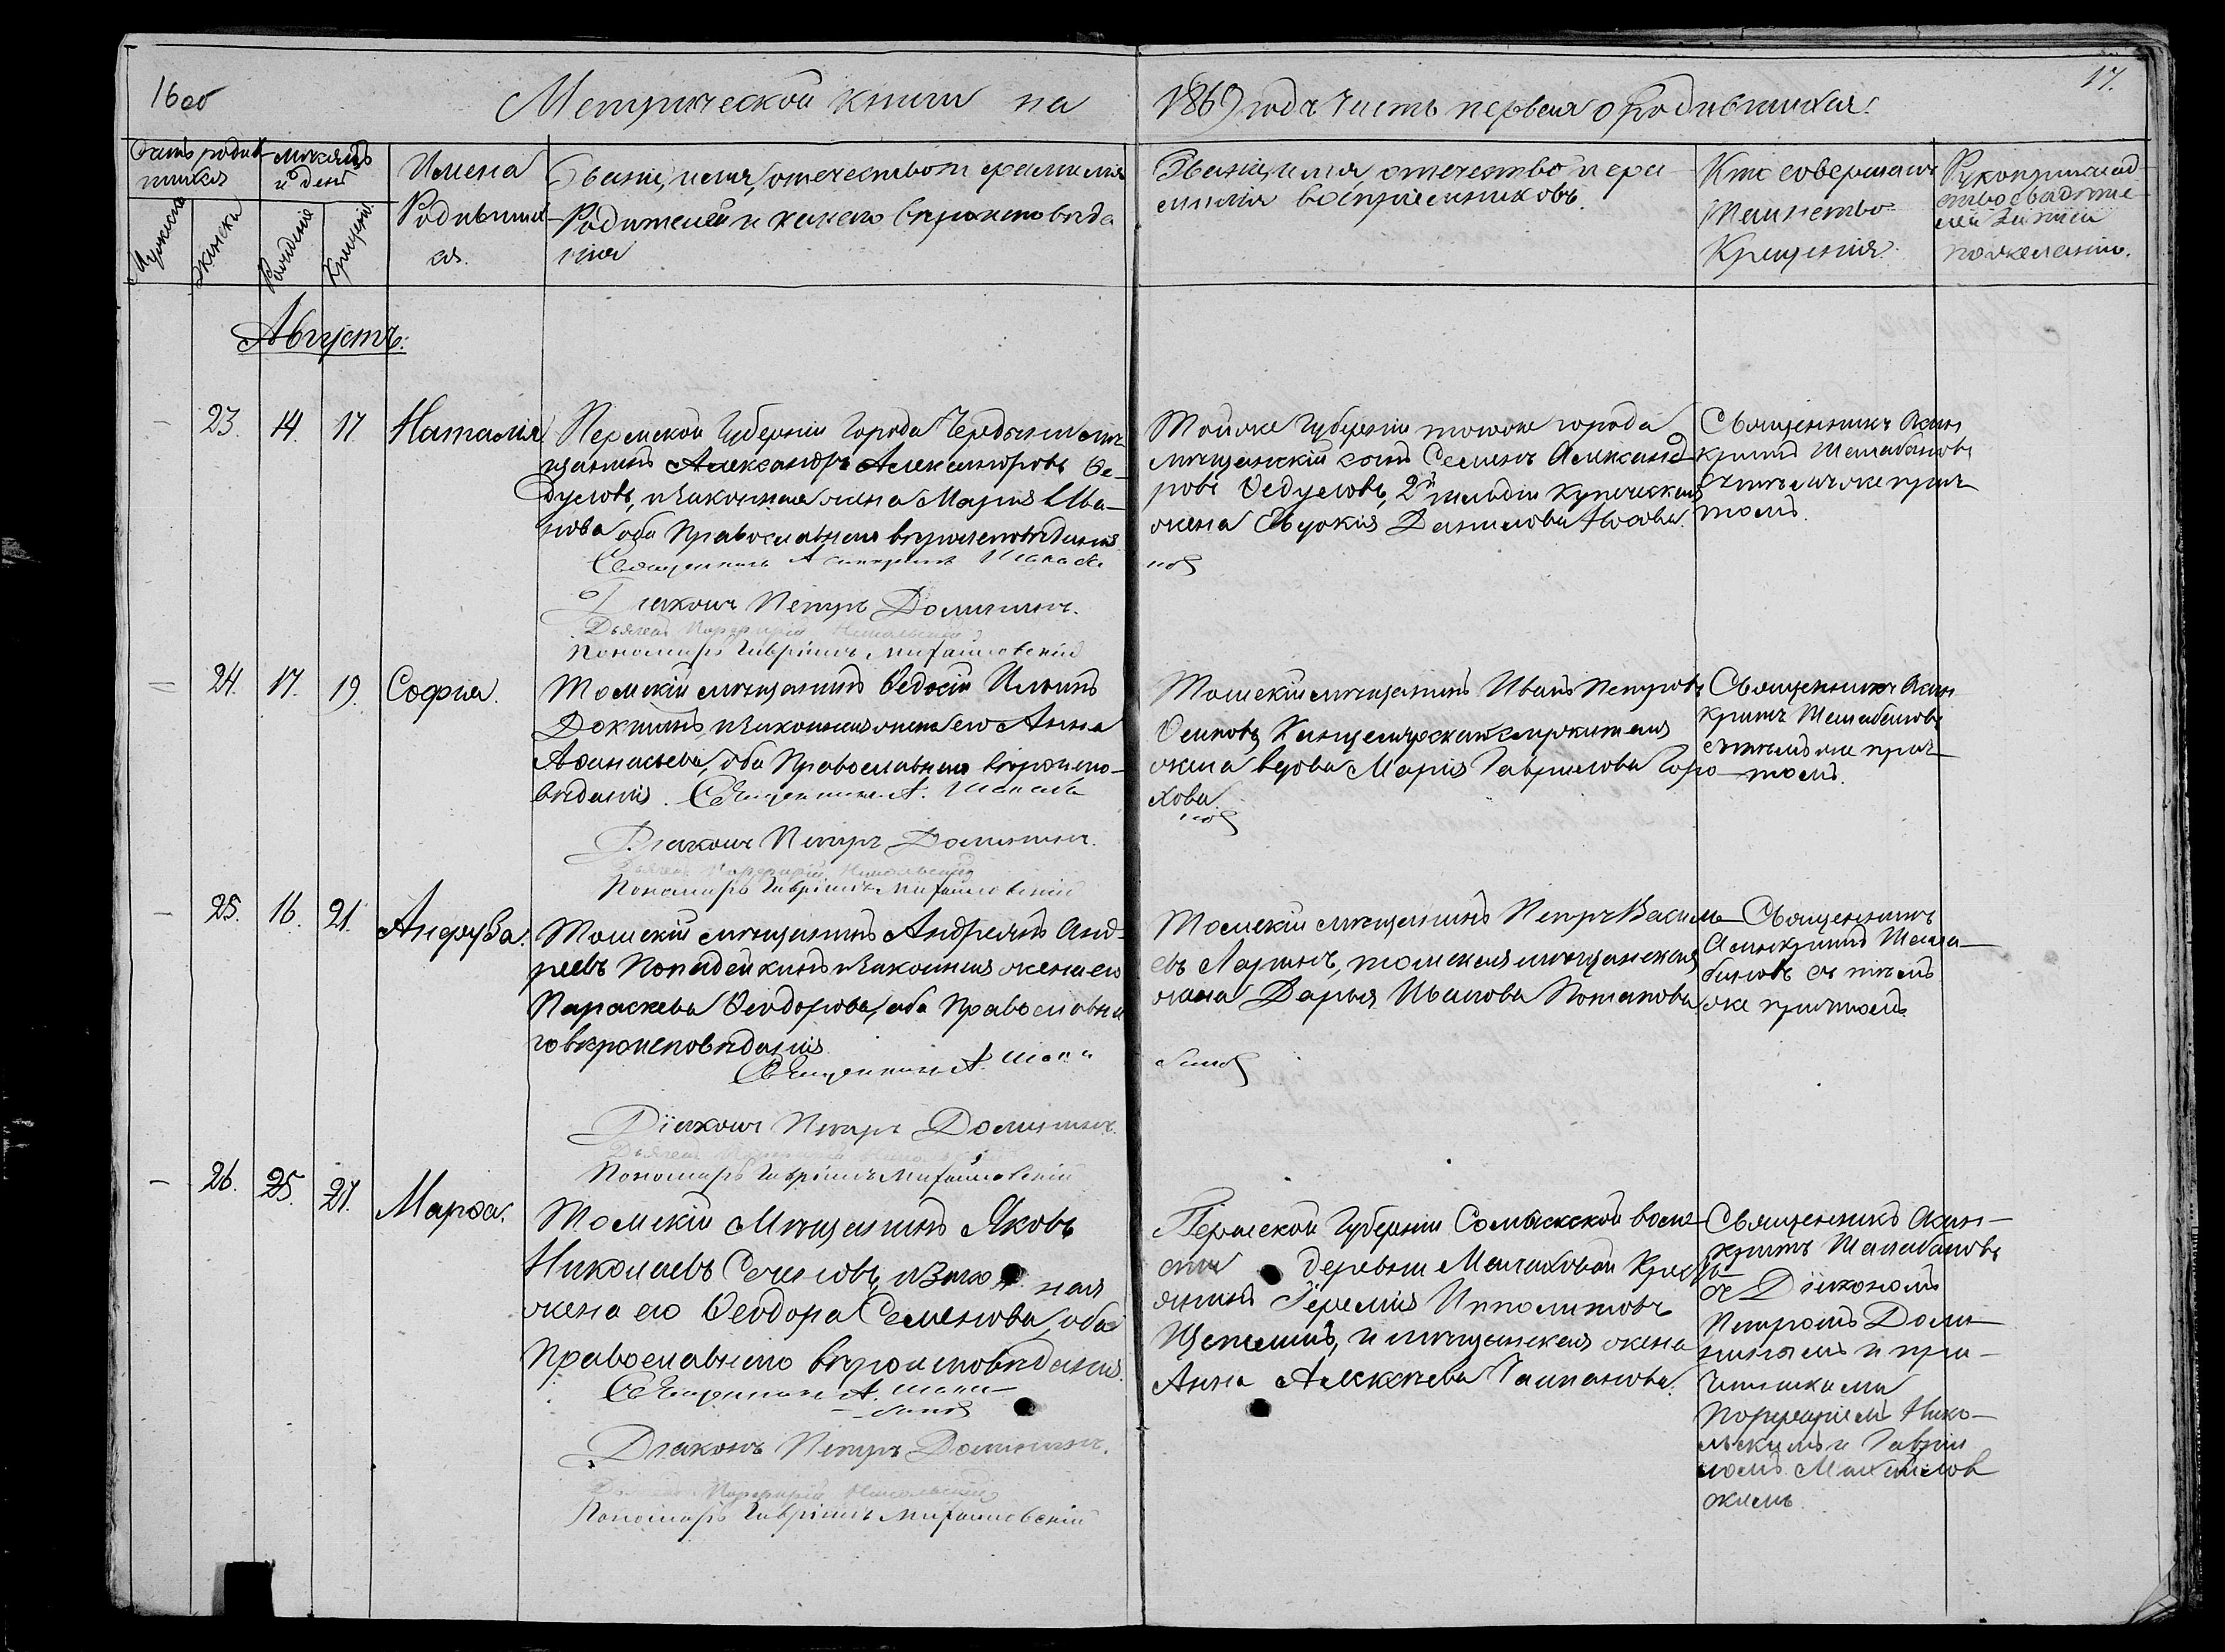 16об
Метрической книги на 1869 года часть первая о родившихся.
17.
Счетъ родившихся
Мужеска
Женска
Месяцъ и день
Рождения
Крещения
Имена Родившихся.
Званіе, имя, отечество и фамилія
Родителей и какого вероисповеда
нія
Званіе, имя отечество и фа
милия воспріемниковъ.
Кто совершалъ
Таинство
Крещенія.
Рукоприклад
ство свидете
лей записи
по желанію.
Августъ:
23. 14. 17. Наталия
Пермской Губерніи Города Чердыни мѣ
щанинъ Александръ Александровъ Ѳе
дусовъ, и законная жена Марія Ива
нова оба Православнаго вѣроисповѣданія
Священникъ Асинкритъ Шала
бановъ
Діаконъ Петръ Домининъ.
Дьячекъ Порфирій Никольскій
Пономарь Гавріилъ Михайловскій
Тойже Губерніи тогоже города
мѣщанскій сынъ Семенъ Александ
ровъ Ѳедусовъ, 2й гильдіи купеческая
жена Евдокія Данилова
Священникъ Асин
критъ Шалабановъ
съ тѣмъ же прич
томъ.
24. 17. 19. Софиа.
Томскій мѣщанинъ Ѳедосій Ильинъ
и законная жена его Анна
Аѳанасьева, оба Православнаго вѣроиспо
вѣданія. Священникъ А. Шалаба
новъ
Діаконъ Петръ Домининъ.
Дьячекъ Порфирій Никольскій
Пономарь Гавріилъ Михайловскій
Томскій мѣщанинъ Иванъ Петровъ
Осиповъ, Канцелярскаго служителя
жена вдова Марія Гаврилова Горо
хова.
Священникъ Асин
критъ Шалабановъ
съ тѣмъ же прич
томъ.
25. 16. 21. Анфуза.
Томскій мѣщанинъ Андреянъ Анд
реевъ Попадейкинъ и законная жена его
Параскева Ѳеодорова, оба Православна
го вѣроисповѣданія
Священникъ А. Шала
бановъ
Діаконъ Петръ Домининъ.
Дьячекъ Порфирій Никольскій
Пономарь Гавріилъ Михайловскій
Томскій мѣщанинъ Петръ Василь
евъ Ларинъ, томская мѣщанская
жена Дарья Иванова Потапова
Священникъ
Асинкритъ Шала
бановъ съ тѣмъ
же причтомъ
26. 25. 27. Марѳа.
Томскій Мѣщанинъ Яковъ
Николаевъ и законная
жена его Ѳеодора Семенова, оба
Православнаго вѣроисповѣданія.
Священникъ А. Шала
бановъ
Діаконъ Петръ Домининъ.
Дьячекъ Порфирій Никольскій
Пономарь Гавріилъ Михайловскій
Пермской Губерніи воло
сти деревни Малаховой Крест
янинъ Іеремія Ипполитовъ
и мѣщанская жена
Анна Алексѣева
Священникъ Асин
критъ Шалабановъ
съ Діякономъ
Петромъ Доми
нинымъ и при
чинниками
Порфиріемъ Нико
льскимъ и Гаврiи
ломъ Михайлов
скимъ.